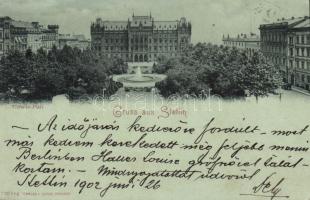 Victoria-Platz
Gruss aus Stettin
— Az időjárás kedvezőre fordult — most
már kedvem kerekedett még feljebb menni
Berlinben Hallies Louise grófnőzet talál-
koztam. — Mindnyájatokat üdvözöl
Stettin 1902 juni 26